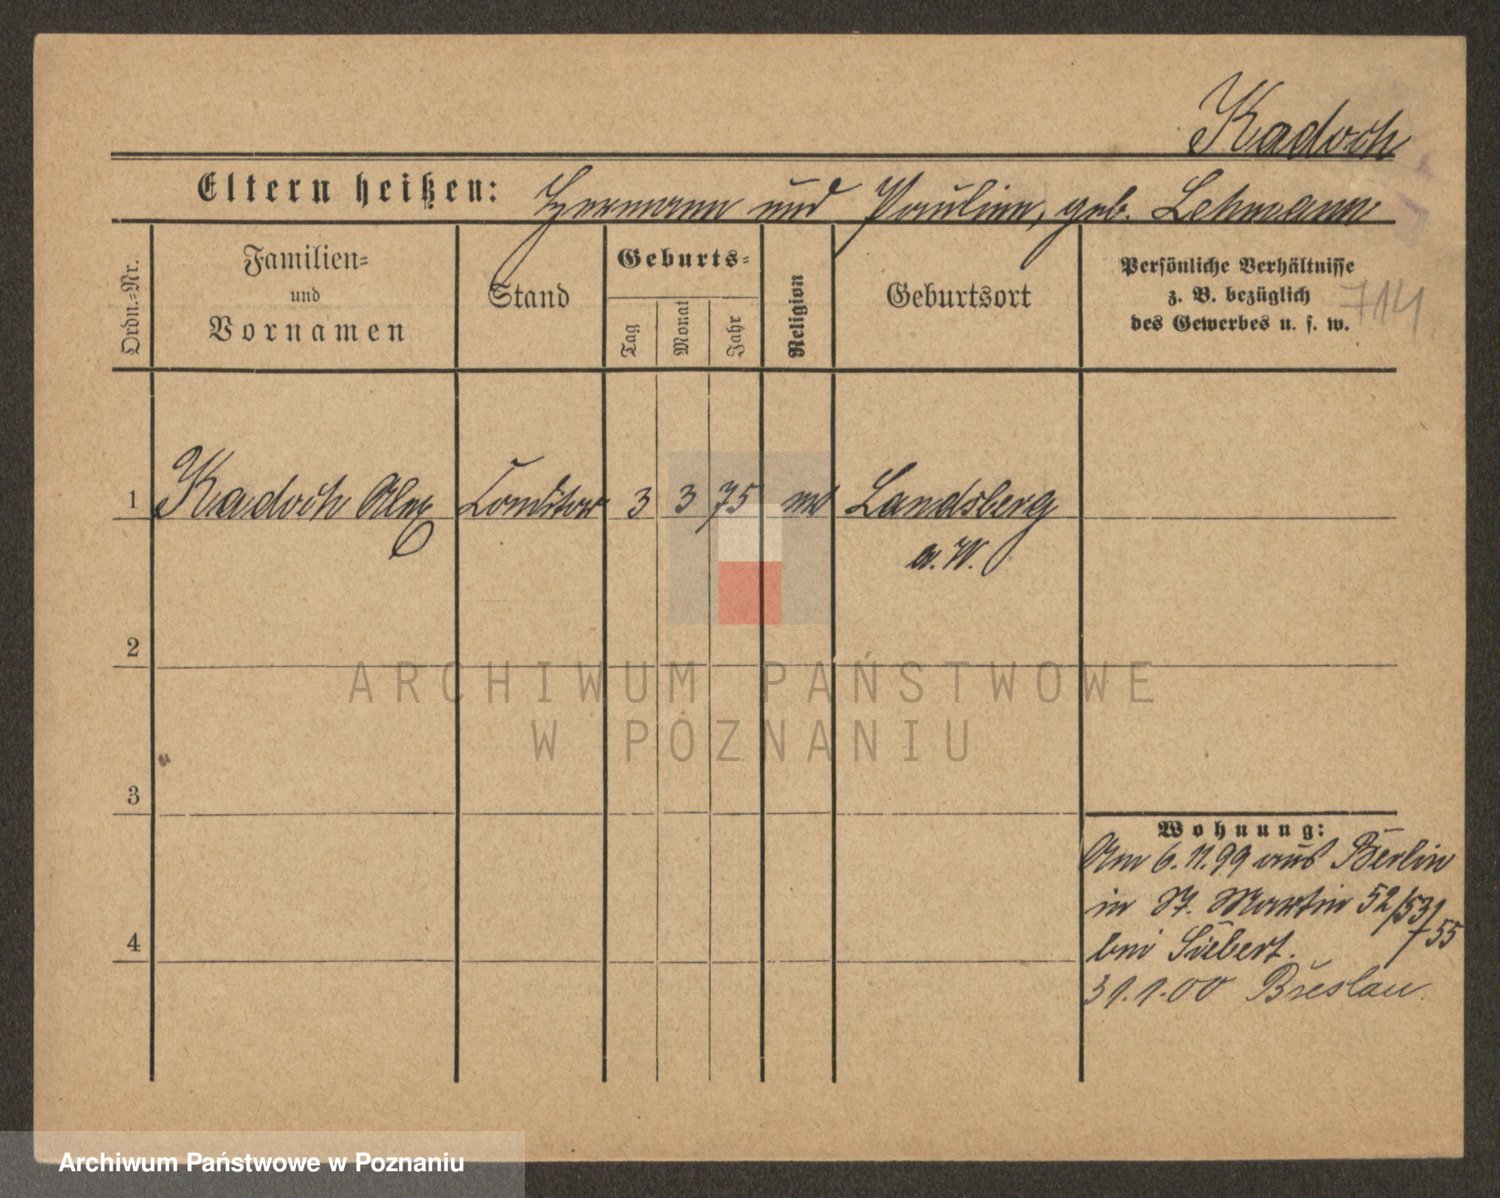 Kadoch
Eltern heißen: Hermann und Pauline, geb. Lehmann
Ordn.-Nr.
Familien-
und
Vornamen
Stand
Geburts-
Tag
Monat
Jahr
Religion
Geburtsort
Persönliche Verhältnisse
z. B. bezüglich
des Gewerbes u. s. w.
714
1 Kadoch Alex Conditor 3 3 75 Landsberg
a. W.
2
ARCHIWUM PAŃSTWOWE
W POZNANIU
3
Wohnung:
Am 6.11.99 aus Berlin
in St. Martin 52/53
/55
bei Siebert.
4
31.1.00 Breslau.
Archiwum Państwowe w Poznaniu